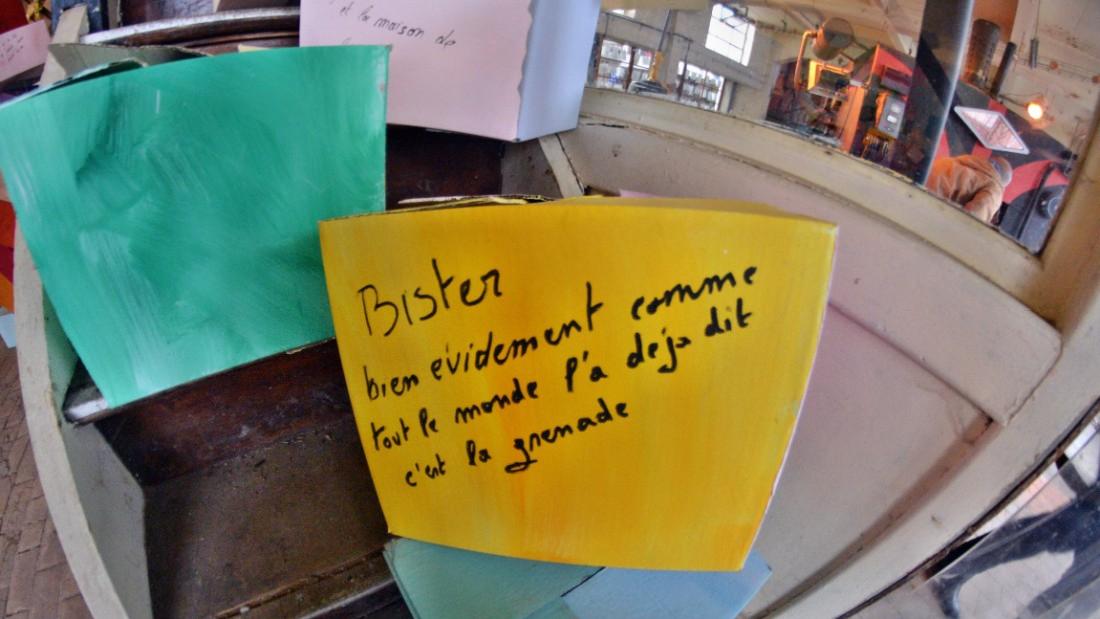 et la maison de
Bister
bien evidement comme
tout le monde l'a deja dit
c'est la grenade